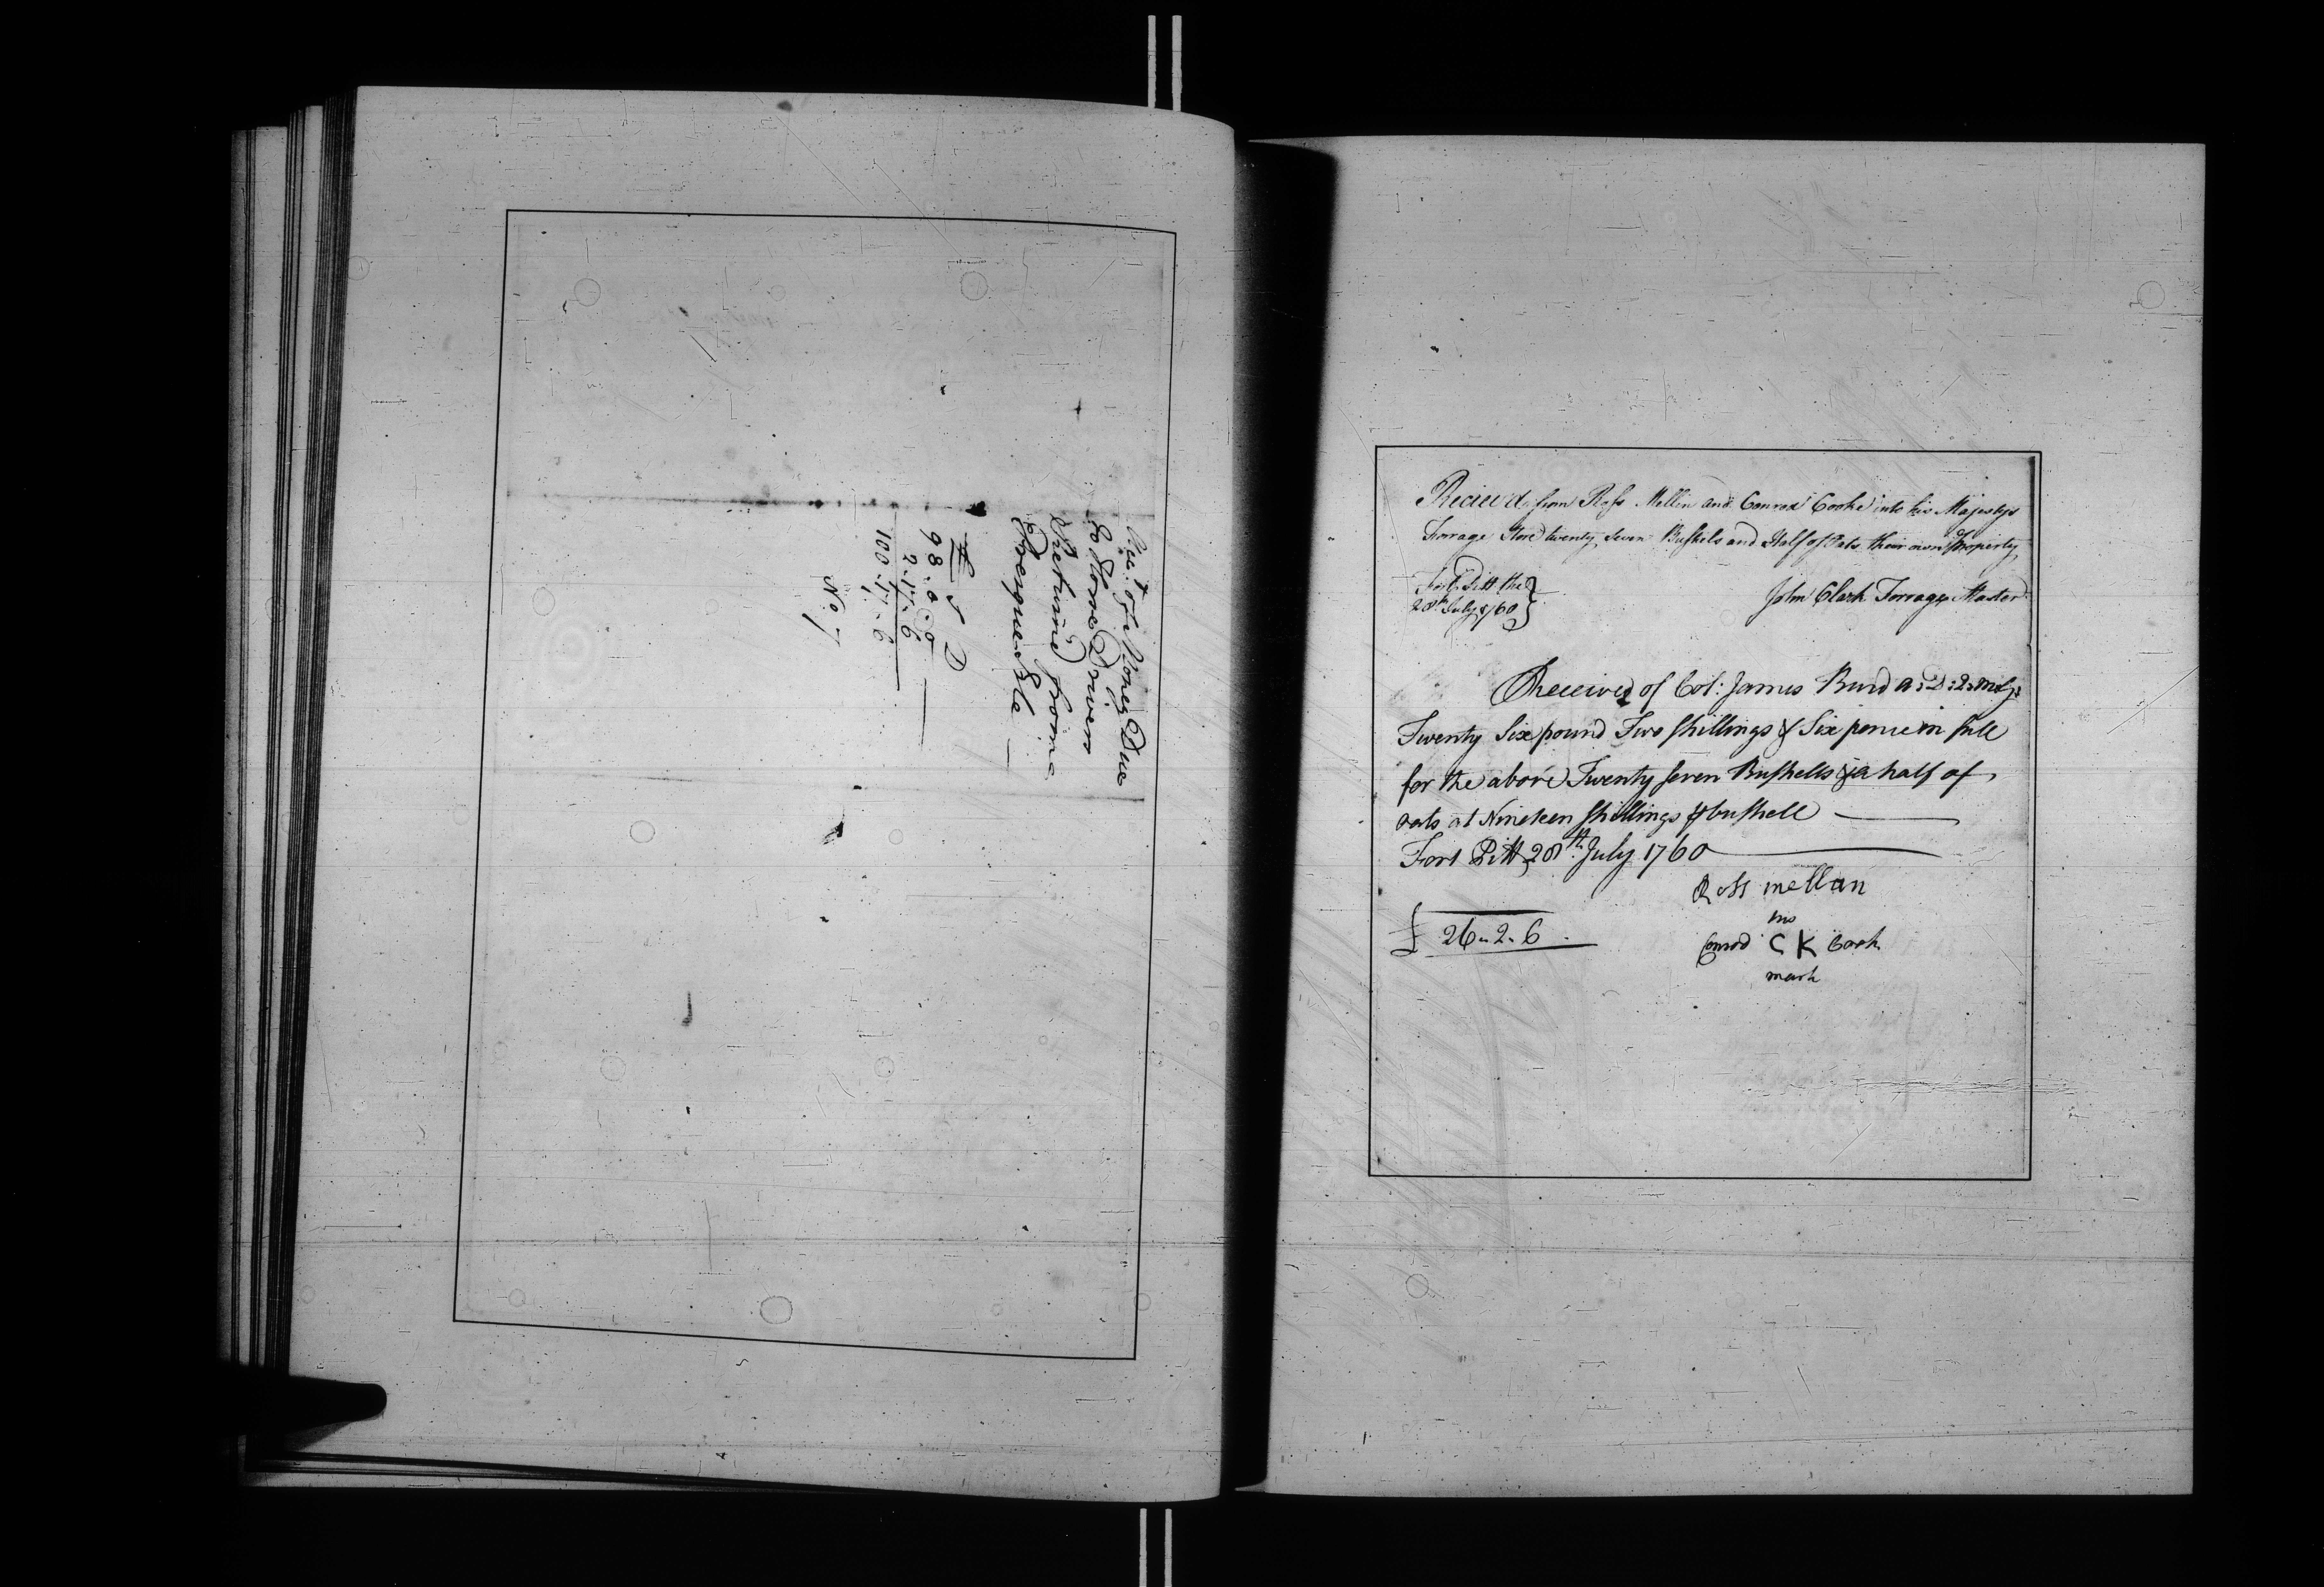 Acct. of Money Due
to some Drivers
Returnd from
Presque Isle —
£ S D
98 . 0 . 0
2 . 17 . 6
100 . 17 . 6
No 7
Reciev'd from Ross Mellin and Conrad Cooke into his Majestys
Forrage Store twenty Seven Bushels and Half of Oats their own Property
John Clark Forrage Master
Fort Pitt the
28th July 1760
Received of Col: James Burd
Twenty Six pound Two shillings & Six pence in full
for the above Twenty seven Bushells & a half of
oats at Nineteen shillings ⅌ bushell
Fort Pitt 28th July 1760
Ross mellan
his
Conrod C K Cook
mark
£ 26 - 2 - 6